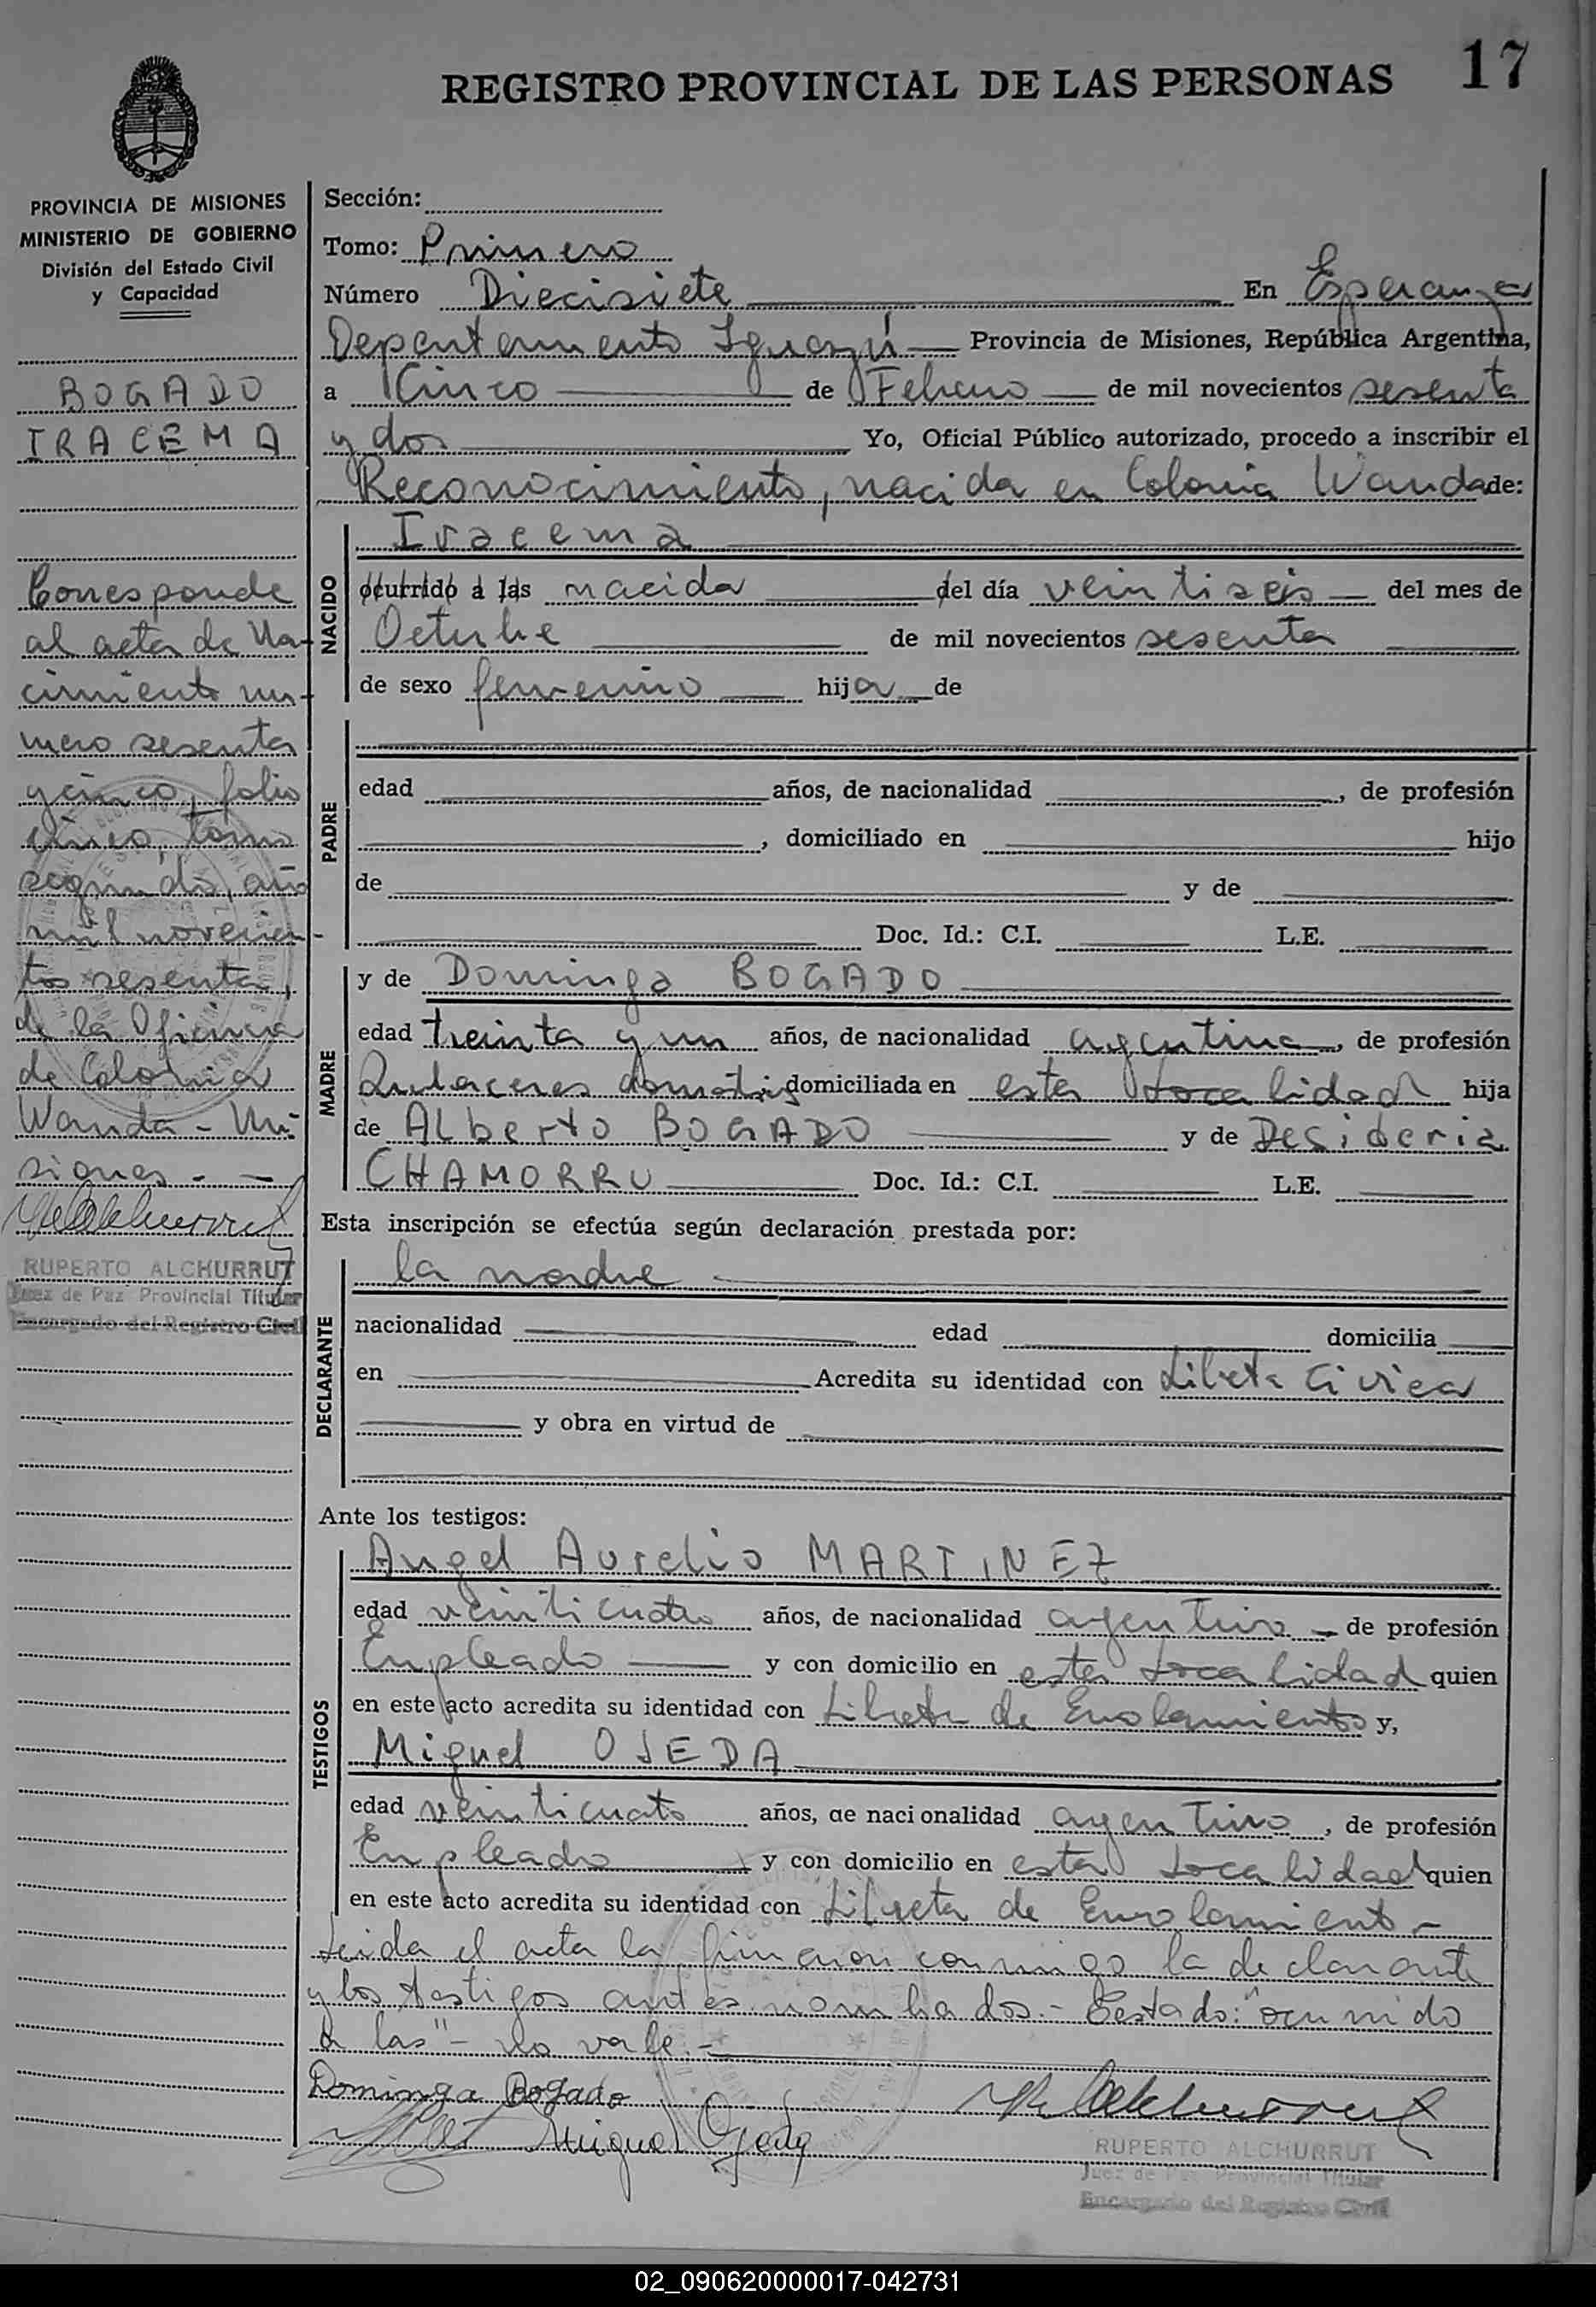 REGISTRO PROVINCIAL DE LAS PERSONAS 17
PROVINCIA DE MISIONES
MINISTERIO DE GOBIERNO
División del Estado Civil
y Capacidad
BOGADO
IRACEMA
Corresponde
al acta de Na-
cimiento nú-
mero sesenta
y cinco, folio
cinco, tomo
segundo, año
mil novecien-
tos sesenta,
de la Oficina
de Colonia
Wanda - Mi-
siones - -
RUPERTO ALCHURRUT
Juez de Paz Provincial Titular
Encargado del Registro Civil
Sección:
Tomo: Primero
Número Diecisiete En Esperanza
Departamento Iguazú Provincia de Misiones, República Argentina,
a Cinco de Febrero de mil novecientos sesenta
y dos Yo, Oficial Público autorizado, procedo a inscribir el
Reconocimiento, nacida en Colonia Wanda de:
NACIDO
Iracema
ocurrido a las nacida del día veintiseis del mes de
Octubre de mil novecientos sesenta
de sexo femenino hija de
PADRE
edad años, de nacionalidad , de profesión
, domiciliado en hijo
de y de
Doc. Id.: C.I. L.E.
MADRE
y de Dominga BOGADO
edad treinta y un años, de nacionalidad argentina, de profesión
Quehaceres domiciliada en esta localidad hija
de Alberto BOGADO y de Desideria
CHAMORRO Doc. Id.: C.I. L.E.
Esta inscripción se efectúa según declaración prestada por:
DECLARANTE
la madre
nacionalidad edad domicilia
en Acredita su identidad con Libreta Cívica
y obra en virtud de
Ante los testigos:
TESTIGOS
Angel Aurelio MARTINEZ
edad veinticuatro años, de nacionalidad argentino - de profesión
Empleado y con domicilio en esta localidad quien
en este acto acredita su identidad con Libreta de Enrolamiento y,
Miguel OJEDA
edad veinticuatro años, de nacionalidad argentino, de profesión
Empleado y con domicilio en esta localidad quien
en este acto acredita su identidad con Libreta de Enrolamiento -
Leida el acta la firmaron conmigo la declarante
y los testigos antes nombrados.- Testado: "ocurrido
a las" - No vale.-
Dominga Bogado
Miguel Ojeda
RUPERTO ALCHURRUT
Juez de Paz Provincial Titular
Encargado del Registro Civil
02_090620000017-042731